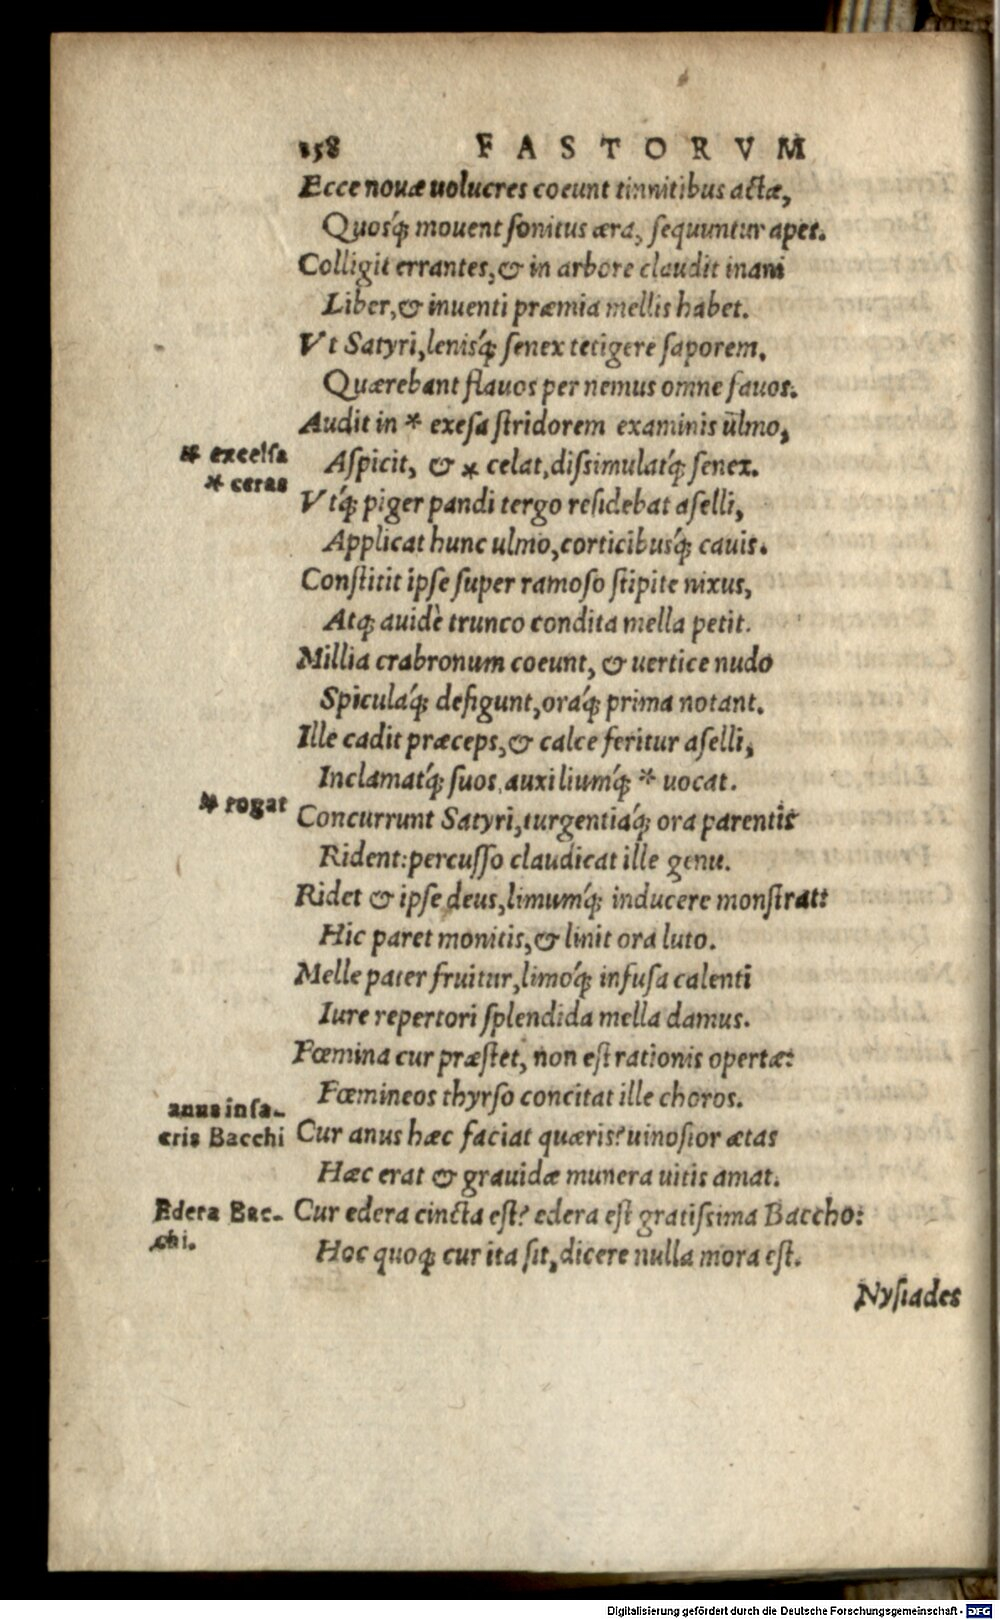 158 FASTORVM
Ecce nouæ uolucres coeunt tinnitibus actæ,
Quosq́; mouent sonitus æra, sequuntur apes.
Colligit errantes, & in arbore claudit inani
Liber, & inuenti præmia mellis habet.
Vt Satyri, lenisq́; senex tetigere saporem,
Quærebant flauos per nemus omne fauos.
Audit in * exesa stridorem examinis ulmo,
* excelsa
Aspicit, & * celat, dissimulatq́; senex.
* ceras
Vtq́; piger pandi tergo residebat aselli,
Applicat hunc ulmo, corticibusq́; cauis.
Constitit ipse super ramoso stipite nixus,
Atq; auidè trunco condita mella petit.
Millia crabronum coeunt, & uertice nudo
Spiculaq́; defigunt, oraq́; prima notant.
Ille cadit præceps, & calce feritur aselli,
Inclamatq́; suos, auxiliumq́; * uocat.
* rogat
Concurrunt Satyri, turgentiaq́; ora parentis
Rident: percusso claudicat ille genu.
Ridet & ipse deus, limumq́; inducere monstrat:
Hic paret monitis, & linit ora luto.
Melle pater fruitur, limoq́; infusa calenti
Iure repertori splendida mella damus.
Fœmina cur præstet, non est rationis opertæ:
Fœmineos thyrso concitat ille choros.
anus in sa-
cris Bacchi
Cur anus hæc faciat quæris? uinosior ætas
Hæc erat & grauidæ munera uitis amat.
Edera Bac-
chi.
Cur edera cincta est? edera est gratissima Baccho:
Hoc quoq; cur ita sit, dicere nulla mora est.
Nysiades
Digitalisierung gefördert durch die Deutsche Forschungsgemeinschaft - DFG